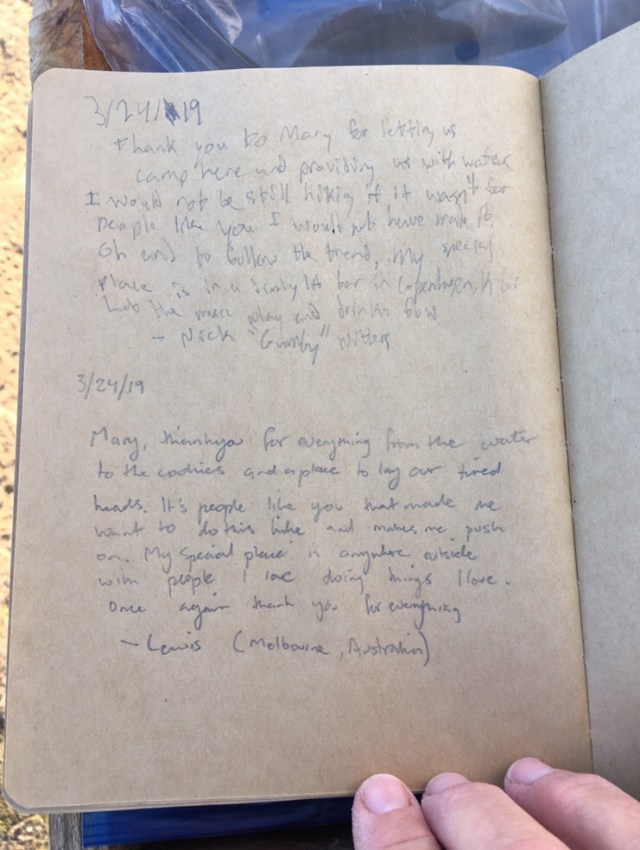 3/24/19
Thank you to Mary for letting us
camp here and providing us with water
I would not be still hiking if it wasn't for
people like you I would not have made it.
Oh and to follow the trend, my special
place is in a bar in Copenhagen,
the music play and drinks flow
- Nick "Gumby"
3/24/19
Mary, thankyou for everything from the water
to the cookies and a place to lay our tired
heads. It's people like you that made me
want to do this hike and makes me push
on. My special place is anywhere outside
with people I love doing things I love.
Once again thank you for everything
- Lewis (Melbourne, Australia)